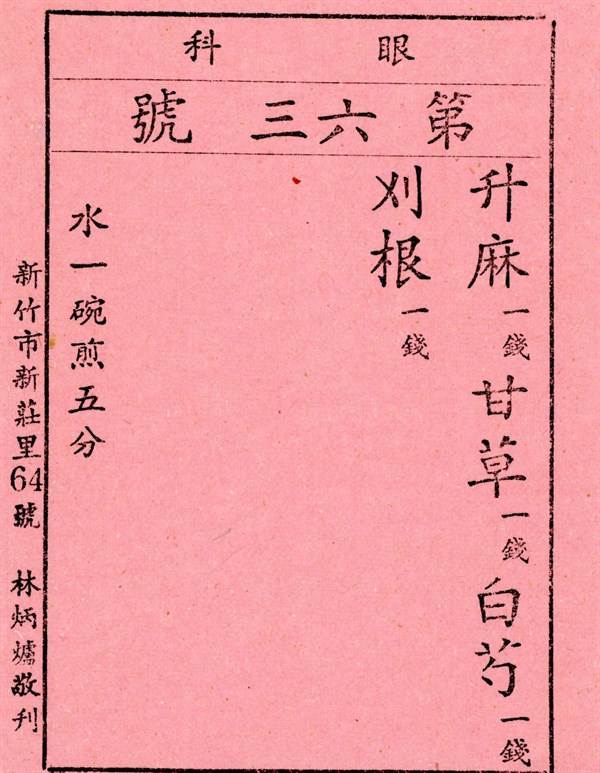 眼科
第六三號
升麻一錢 甘草一錢 白芍一錢
刈根一錢
水一碗煎五分
新竹市新莊里64號 林炳爐敬刊